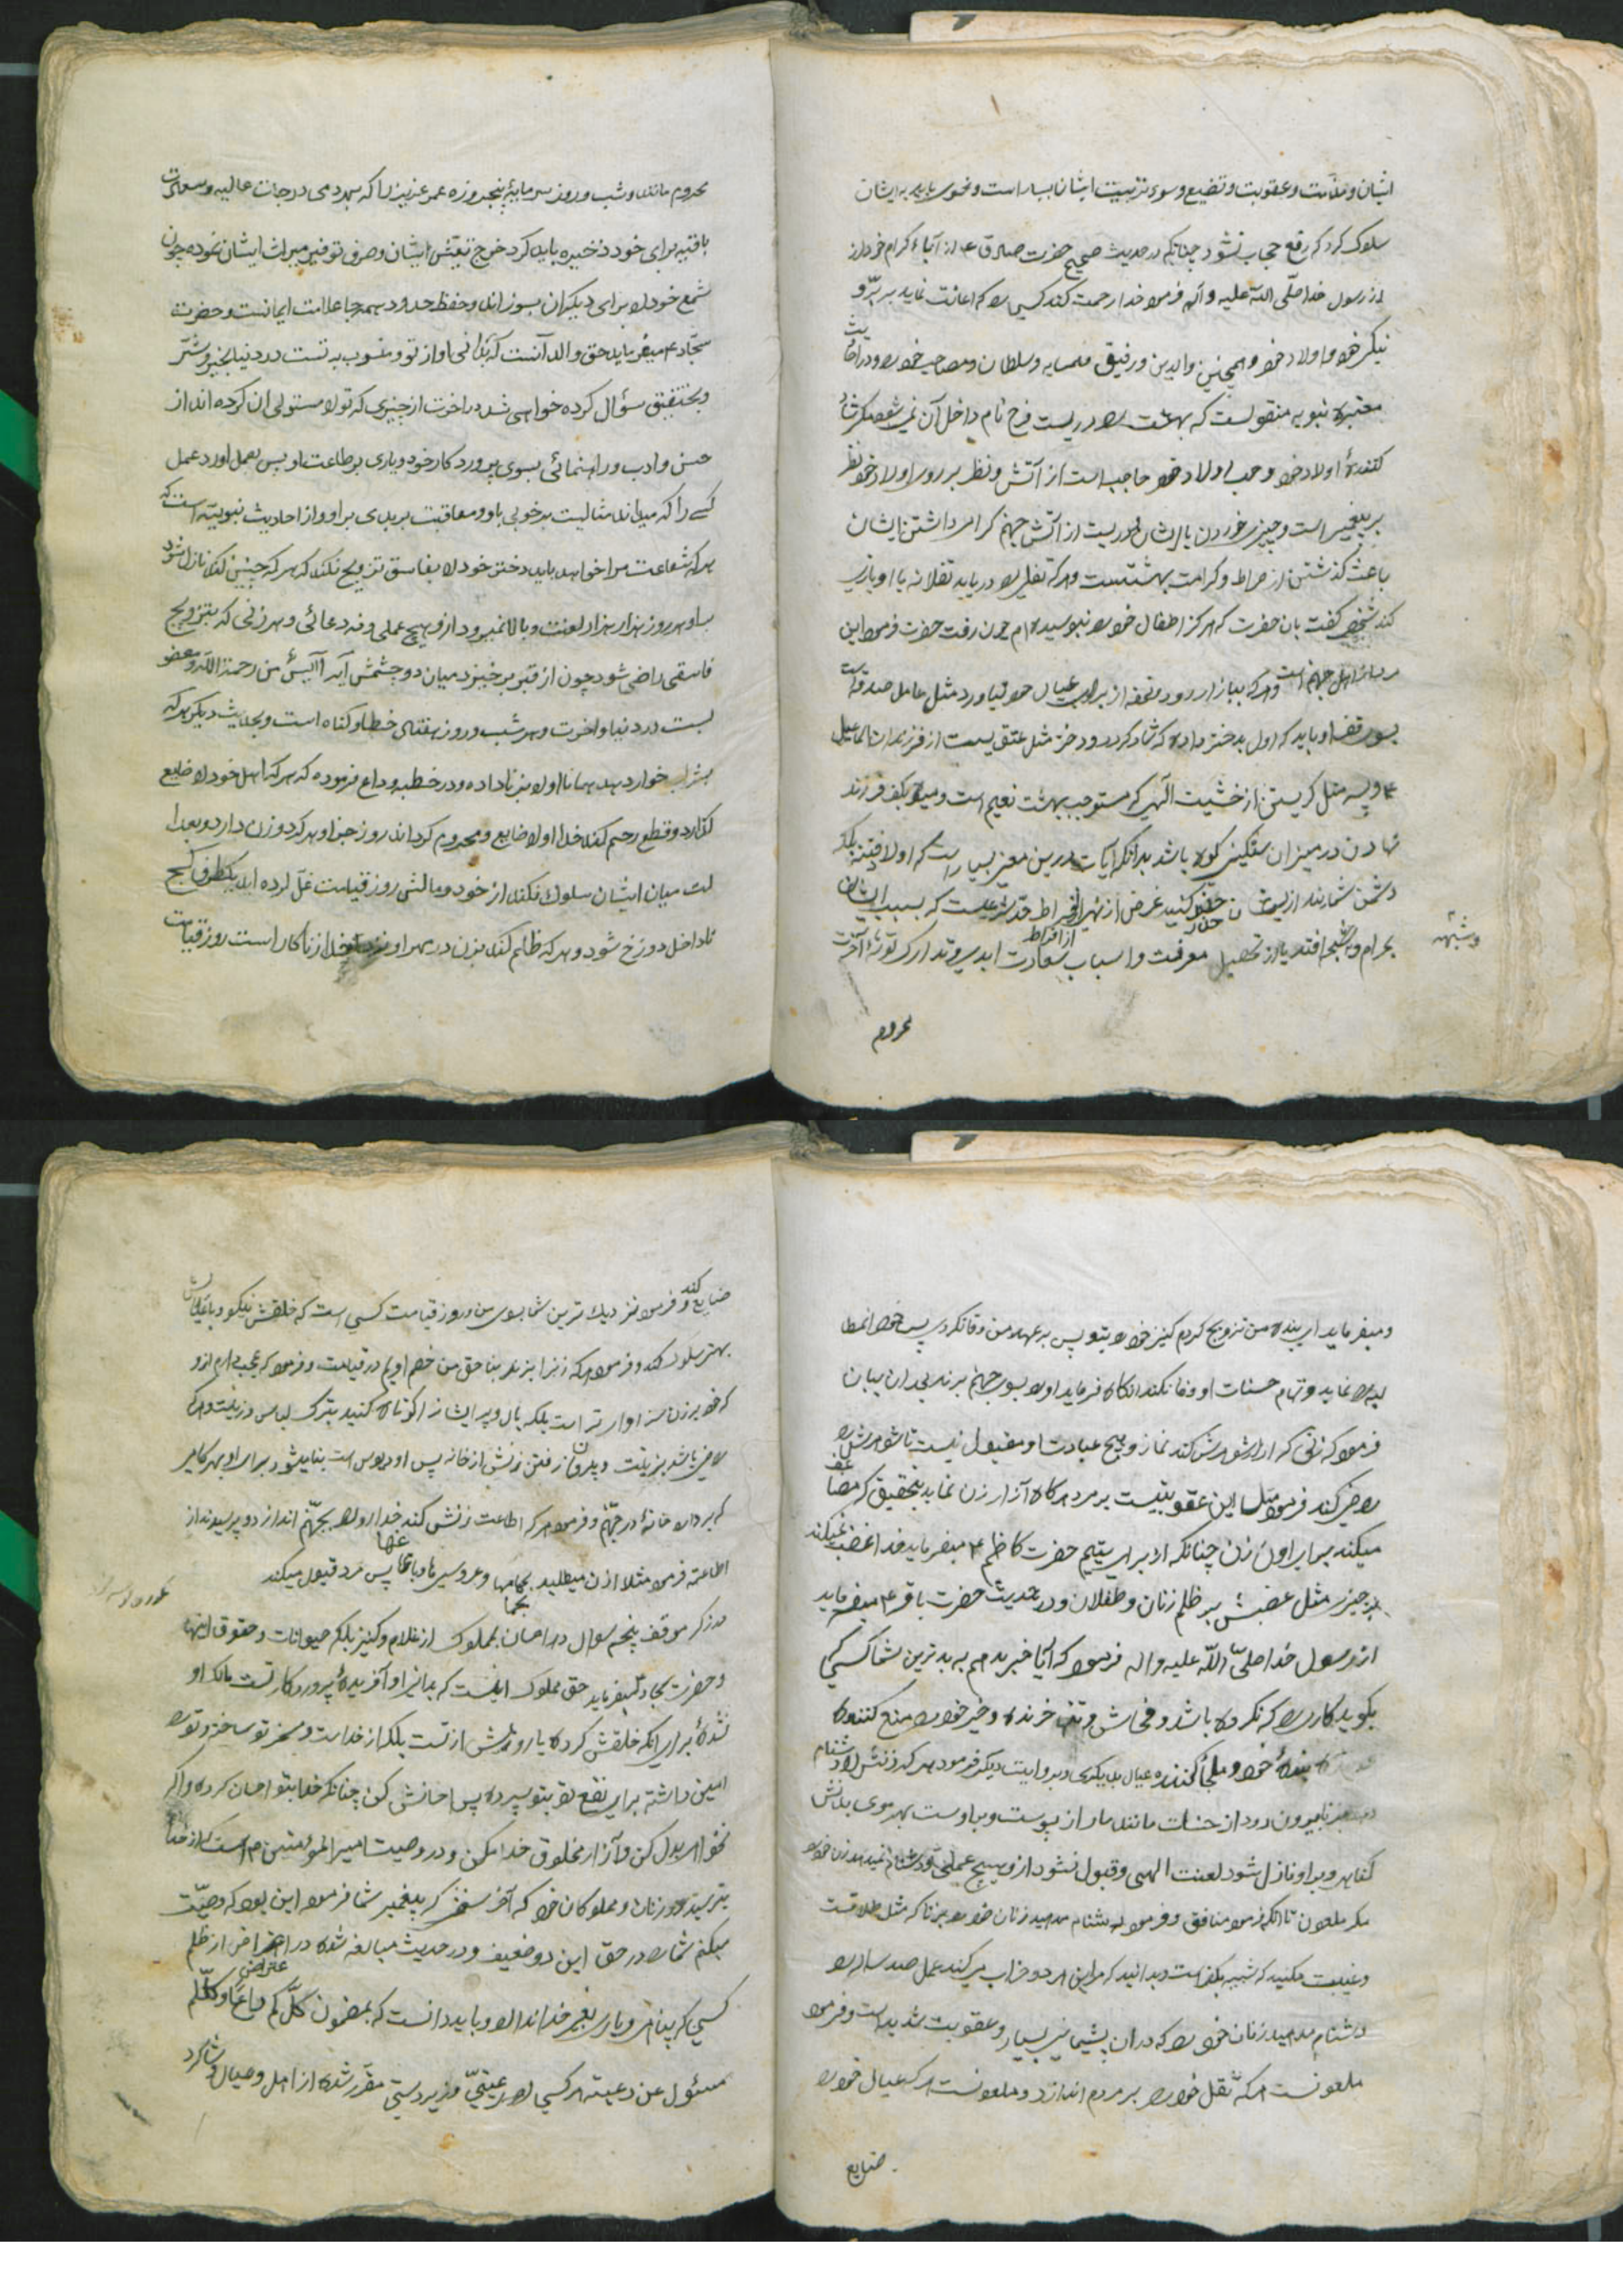 ایشان و ملامت و عقوبت و تضییع و سوء تربیت ایشان بسیار است و نحوی باید به ایشان
سلوک کرد که رفع حجاب نشود چنانکه در حدیث صحیح حضرت صادق ۴ از آباء کرام خود از
از رسول خدا صلّی اللّه علیه و آله فرموده خدا رحمت کند کسی را که اعانت نماید بر برّ و
نیکی خود اولاد خود و همچنین والدین و رفیق و همسایه و سلطان و مصاحب خود را و در احادیث
معتبره نبویه منقولست که بهشت را دریست فرح نام داخل آن نمی‌شود مگر شاد
کننده اولاد خود و حب اولاد خود حاجب است از آتش و نظر بر روی اولاد خود نظر
بر پیغمبر است و چیز خوردن با ایشان دوریست از آتش جهنم گرامی داشتن ایشان
باعث گذشتن از صراط و کرامت بهشتست و هر که
کند شخصی گفت بان حضرت که هرگز اطفال خود را نبوسیده‌ام چون رفت حضرت فرمود این
مرد از اهل جهنم است و هر که ببازار رود و تحفه از برای عیال خود بیاورد مثل عامل صدقه است
باید که اول بدختر داده که شاد کردن دختر مثل عتق یست از فرزندان اسماعیل
۴ و پسر مثل گریستن از خشیت الهی که مستوجب بهشت نعیم است و میوه بکف فرزند
نهادن در میزان سنگین کوه باشد بدانکه آیات درین معنی بسیار است که اولاد فتنه بلکه
دشمن شمارند از ایشان حذر کنید غرض از نهی افراط حدّ شرعیست که بسبب ایشان
بحرام و شبهه افتد یا از تحصیل معرفت و اسباب سعادت ابدی و تدارک توشه آخرت
و شبهه
محروم
محروم ماند و شب و روز سرمایه پنجروزه عمر عزیز را که بهر دمی درجات عالیه و سعادت
باقیه برای خود ذخیره باید کرد خرج تعیّش ایشان و صرف توفیر میراث ایشان نموده چون
شمع خود را برای دیگران بسوزاند و حفظ حدود همه جا علامت ایمانست و حضرت
سجّاد ۴ میفرماید حق والد آنست که بدانی او از تو و منسوب به تست در دنیا بخیر و شرّ
و بتحقیق سؤال کرده خواهی شد در اخرت از چیزی که تو را مستولی ان کرده‌اند از
حسن و ادب و راهنمائی بسوی پروردکار خود و یاری بر طاعت او پس بعمل اور عمل
کسی را که میداند مثابست بر خوبی باو و معاقبت بر بدی بر او و از احادیث نبویّه است که
هر که شفاعت مرا خواهد باید دختر خود را بفاسق تزویج نکند که هر که چنین کند نازل شود
باو هر روز هزار هزار لعنت و بالا نمیرود از او هیچ عملی و نه دعائی و هر زنی که بتزویج
فاسقی راضی شود چون از قبر برخیزد میان دو چشمش آیه آایس من رحمة اللّه و مغضو
بست در دنیا و اخرت و هر شب و روز هفتاد خطا و کناه است و بحدیث دیگر هر که
بشراب خوار دهد همانا او را بزنا داده و در خطبه وداع فرموده که هر که اهل خود را ضایع
گذارد و قطع رحم کند خدا او را ضایع و محروم گرداند روز جزا و هر که دو زن دارد و بعدا
لت میان ایشان سلوک نکند از خود و مالش روز قیامت غلّ کرده اید یکطرف کج
تا داخل دوزخ شود و هر که ظلم کند بزن در مهر او نزد خدا از زناکار است روز قیامت
و میفرماید ای بنده من تزویج کردم کنیز خود را بتو پس به عهد من وفا نکردی پس خود انمطا
لبه نماید و تمام حسنات او وفا نکند انگاه فرماید او را بسوی جهنم برند بعد از ان بیان
فرمود که زنی که آزار شوهرش کند نماز و هیچ عبادت او مقبول نیست تا شوهرش را
راضی کند فرمود مثل این عقوبتیست بر مرد هر گاه آزار زن نماید بتحقیق که مضاعف
میکند برابر اون زن چنانکه از برای یتیم حضرت کاظم ۴ میفرماید خدا غضب نمیکند
چیزی مثل غضبش بر ظلم زنان و طفلان و در حدیث حضرت باقر ۴ میفرماید
از رسول خدا صلّی اللّه علیه و اله فرموده که آیا خبر بدهم به بدترین شما کسی که
بگوید کاری را که نکرده باشد و فحاش و خرنده و خیر خود را منع کننده
بنده خود و ملجأ کننده عیال بدیگری و بروایت دیگر فرمود هر که زنش را دشنام
بیرون رود از حسنات مانند مار از پوست و بر اوست بهر موی بدنش
کناهی و بر او نازل شود لعنت الهی و قبول نشود از او هیچ عملی و دشنام نمیدهد زن خود را
مگر ملعون تا انکه فرمود منافق و فرمود دشنام مدهید زنان خود را بزنا که مثل طلاقست
و غیبت مکنید که شبیه بکفر است و بدانید که این هر دو خراب میکند عمل صد ساله را
دشنام مدهید زنان خود را که در ان پشیمانی بسیار و عقوبت شدید است و فرمود
ملعونست هر که ثقل خود را بر مردم اندازد و ملعونست هر که عیال خود را
ضایع
ضایع کند و فرمود نزدیک ترین شما بسوی من در روز قیامت کسی است که خلقش نیکو و با عیالش
بهتر سلوک کند و فرمود هر که زن را بزند بناحق من خصم اویم در قیامت و فرمود که عجب دارم از او
که خود بزدن سزاوار تر است بلکه بال و پر ایشانرا کوتاه کنید بترک لباس و زینت و هر که
راضی باشد بزینت و بیرون رفتن زنش از خانه پس او دیوس است بنا میشود برای او بهر گامی
که بردارد خانه در جهنّم و فرمود هر که اطاعت زنش کند خدا او را بجهنّم اندازد و پرسیدند از
اطاعت فرمود مثلا اذن میطلبد بحمامها و عروسیها پس مرد قبول میکند
در ذکر موقف پنجم سوال در احسان بمملوک از غلام و کنیز بلکه حیوانات و حقوق اینها
و حضرت سجاد میفرماید حق مملوک اینست که بدانی او آفریده پروردکار تست مالک او
نشده برای انکه خلقش کرده یا روزیش از تست بلکه از خداست و مسخر تو ساخته و تو را
امین داشته برای نفع تو بتو سپرده پس احسانش کن چنانکه خدا بتو احسان کرده و اگر
نخواهی بدل کن و آزار مخلوق خدا مکن و در وصیت امیر المومنین است از خدا
بترسید در زنان و مملوکان خود که آخر سخن که پیغمبر شما فرموده این بود که وصیّت
میکنم شما را در حق این دو ضعیف و در حدیث مبالغه شده در احتراض از ظلم
کسی که پناهی و یاری بغیر خدا ندارد و باید دانست که بمضمون کلّکم راع و کلّکم
مسئول عن رعیته هر کسی را رعیتیّ و زیردستی مقرّر شده از اهل و عیال و شاگرد